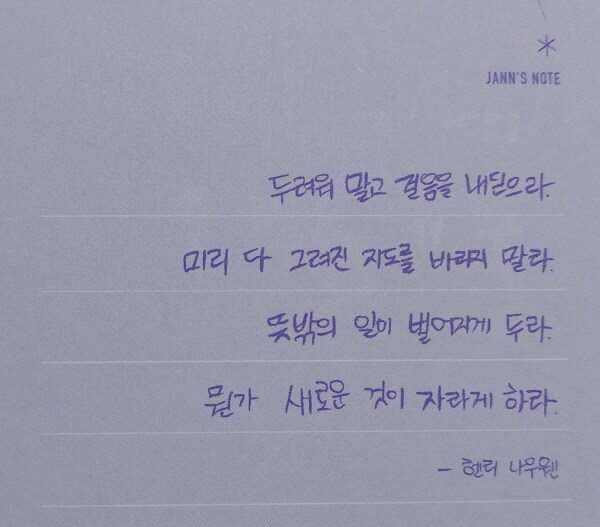 JANN'S NOTE
두려워 말고 걸음을 내딛으라.
미리 다 그려진 지도를 바라지 말라.
뜻밖의 일이 벌어지게 두라.
뭔가 새로운 것이 자라게 하라.
- 헨리 나우웬